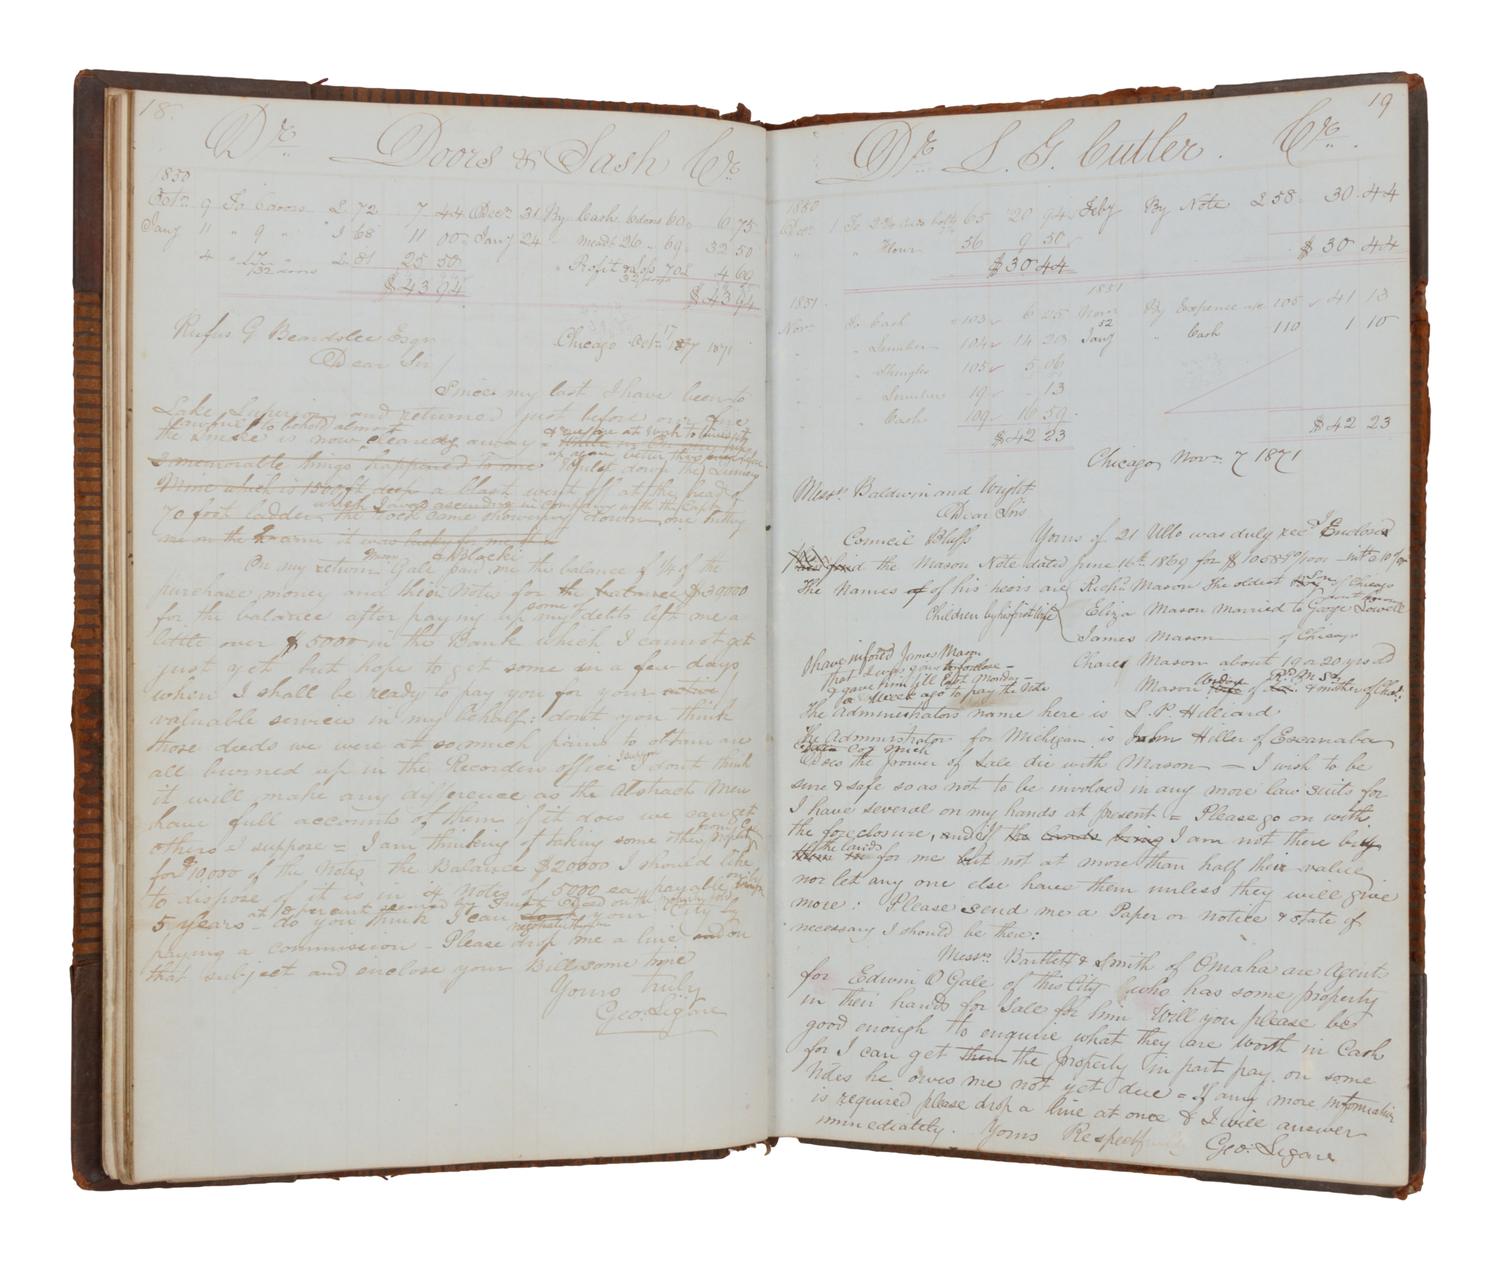 18.
Dr. Doors & Sash Cr.
1850
Octr 9 To 6 doors 2 72 7 44 Decr 31 By Cash 6 doors 60 6 75
Jany 11 " 9 " " 1 68 11 00 Jany 24 " 26 " 69 32 50
4 " 17 2 81 25 50 " Profit & loss 70 4 69
$43 94 $43 94
Rufus G Beardslee Esqr Chicago Octr 17 1871
Dear Sir/
Since my last I have been to
Lake Superior and returned just before our fire
awful to behold almost
the smoke is now clearing away = & we are at work to
up again better than ever before
memorable things happened to me whilst down the
Mine which is 1500 ft deep a blast went off at the head of
which I was ascending in company with the Capt
70 foot ladder the rock came showering down one hitting
me on the it was lucky for me
On my return Gale paid me the balance of 1/4 of the
purchase money and their Notes for the balance $30000
for the balance after paying up some of my debts left me a
little over $5000 in the Bank which I cannot get
just yet but hope to get some in a few days
when I shall be ready to pay you for your active/
valuable service in my behalf: dont you think
those deeds we were at so much pains to obtain are
all burned up in the Recorders office I dont think
it will make any difference as the Abstract Men
have full accounts of them if it does we can get
others I suppose = I am thinking of taking some other
for $10,000 of the Notes, the Balance $20000 I should like
to dispose of it is in 4 Notes of 5000 ea payable
at 10 percent secured by Trust Deed on the
5 years - do you think I can negotiate them your City by
paying a commission - Please drop me a line on
that subject and enclose your Bill some time
Yours truly
Geo. Legare
19
Dr. L. G. Cutler. Cr.
1850
Decr 1 To 65 20 94 Feby By Note 258 30 44
" " Flour 56 9 50 $30 44
$30 44
1851 1851
Novr To Cash 103 6 25 Novr By Expense a/c 105 41 13
" " Lumber 104 14 20 52 Jany " Cash 110 1 10
" " Shingles 105 5 06
" " Lumber 19 - 13
" " Cash 109 16 59
$42 23 $42 23
Chicago Novr 7 1871
Messrs Baldwin and Wright
Dear Sirs
Council Bluffs Yours of 21 Ulto was duly recd Enclosed
find the Mason Note dated June 16th 1869 for $1058
The Names of his heirs are Richd Mason the oldest Son / Chicago
Children by his first wife Eliza Mason married to George Lowell
James Mason of Chicago
I have informed James Mason Charles Mason about 19 a 20 yrs old
that I was going to foreclose -
I gave him till last Monday - Mason Widow of & mother of Chas.
a week ago to pay the Note
The Administrators name here is L. P. Hilliard
The Administrator for Michigan is John Hiller of Escanaba
Delta Co: Mich
Does the power of Sale die with Mason - I wish to be
sure & safe so as not to be involved in any more law suits for
I have several on my hands at present = Please go on with
the foreclosure, and if the lands being I am not there buy
the lands
for me but not at more than half their value
nor let any one else have them unless they will give
more: Please send me a Paper or notice & state if
necessary I should be there:
Messrs Bartlett & Smith of Omaha are Agents
for Edwin O Gale of this City who has some property
in their hands for Sale for him Will you please be
good enough to enquire what they are worth in Cash
for I can get them the property in part pay on some
Notes he owes me not yet due = If any more information
is required please drop a line at once & I will answer
immediately. Yours Respectfully Geo. Legare